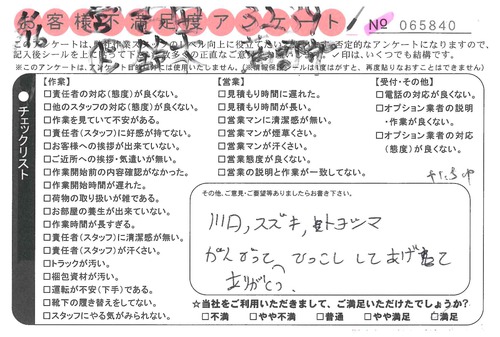 お客様不満足度アンケート
No 065840
このアンケートは、
否定的なアンケートになりますので、
記入後シールを上にはって下さい。
✓印は、いくつでも結構です。
※このアンケートは、アンケート
には使用いたしません。
1度はがすと、再度貼りなおすことはできません)
チェックリスト
【作業】
□責任者の対応(態度)が良くない。
□他のスタッフの対応(態度)が良くない。
□作業を見ていて不安がある。
□責任者(スタッフ)に好感が持てない。
□お客様への挨拶が出来ていない。
□ご近所への挨拶・気遣いが無い。
□作業開始前の内容確認がなかった。
□作業開始時間が遅れた。
□荷物の取り扱いが雑である。
□お部屋の養生が出来ていない。
□作業時間が長すぎる。
□責任者(スタッフ)に清潔感が無い。
□責任者(スタッフ)が汗くさい。
□トラックが汚い。
□梱包資材が汚い。
□運転が不安(下手)である。
□靴下の履き替えをしてない。
□スタッフにやる気がみられない。
【営業】
□見積もり時間に遅れた。
□見積もり時間が長い。
□営業マンに清潔感が無い。
□営業マンが煙草くさい。
□営業マンが汗くさい。
□営業態度が良くない。
□営業の説明と作業が一致してない。
【受付・その他】
□電話の対応が良くない。
□オプション業者の説明
・作業が良くない。
□オプション業者の対応
(態度)が良くない。
その他、ご意見・ご要望等ありましたらお書き下さい。
川口,スズキ,
がんばって ひっこし してあげ
て
ありがとう.
☆当社をご利用いただきまして、ご満足いただけたでしょうか?
□不満 □やや不満 □普通 □やや満足 □満足